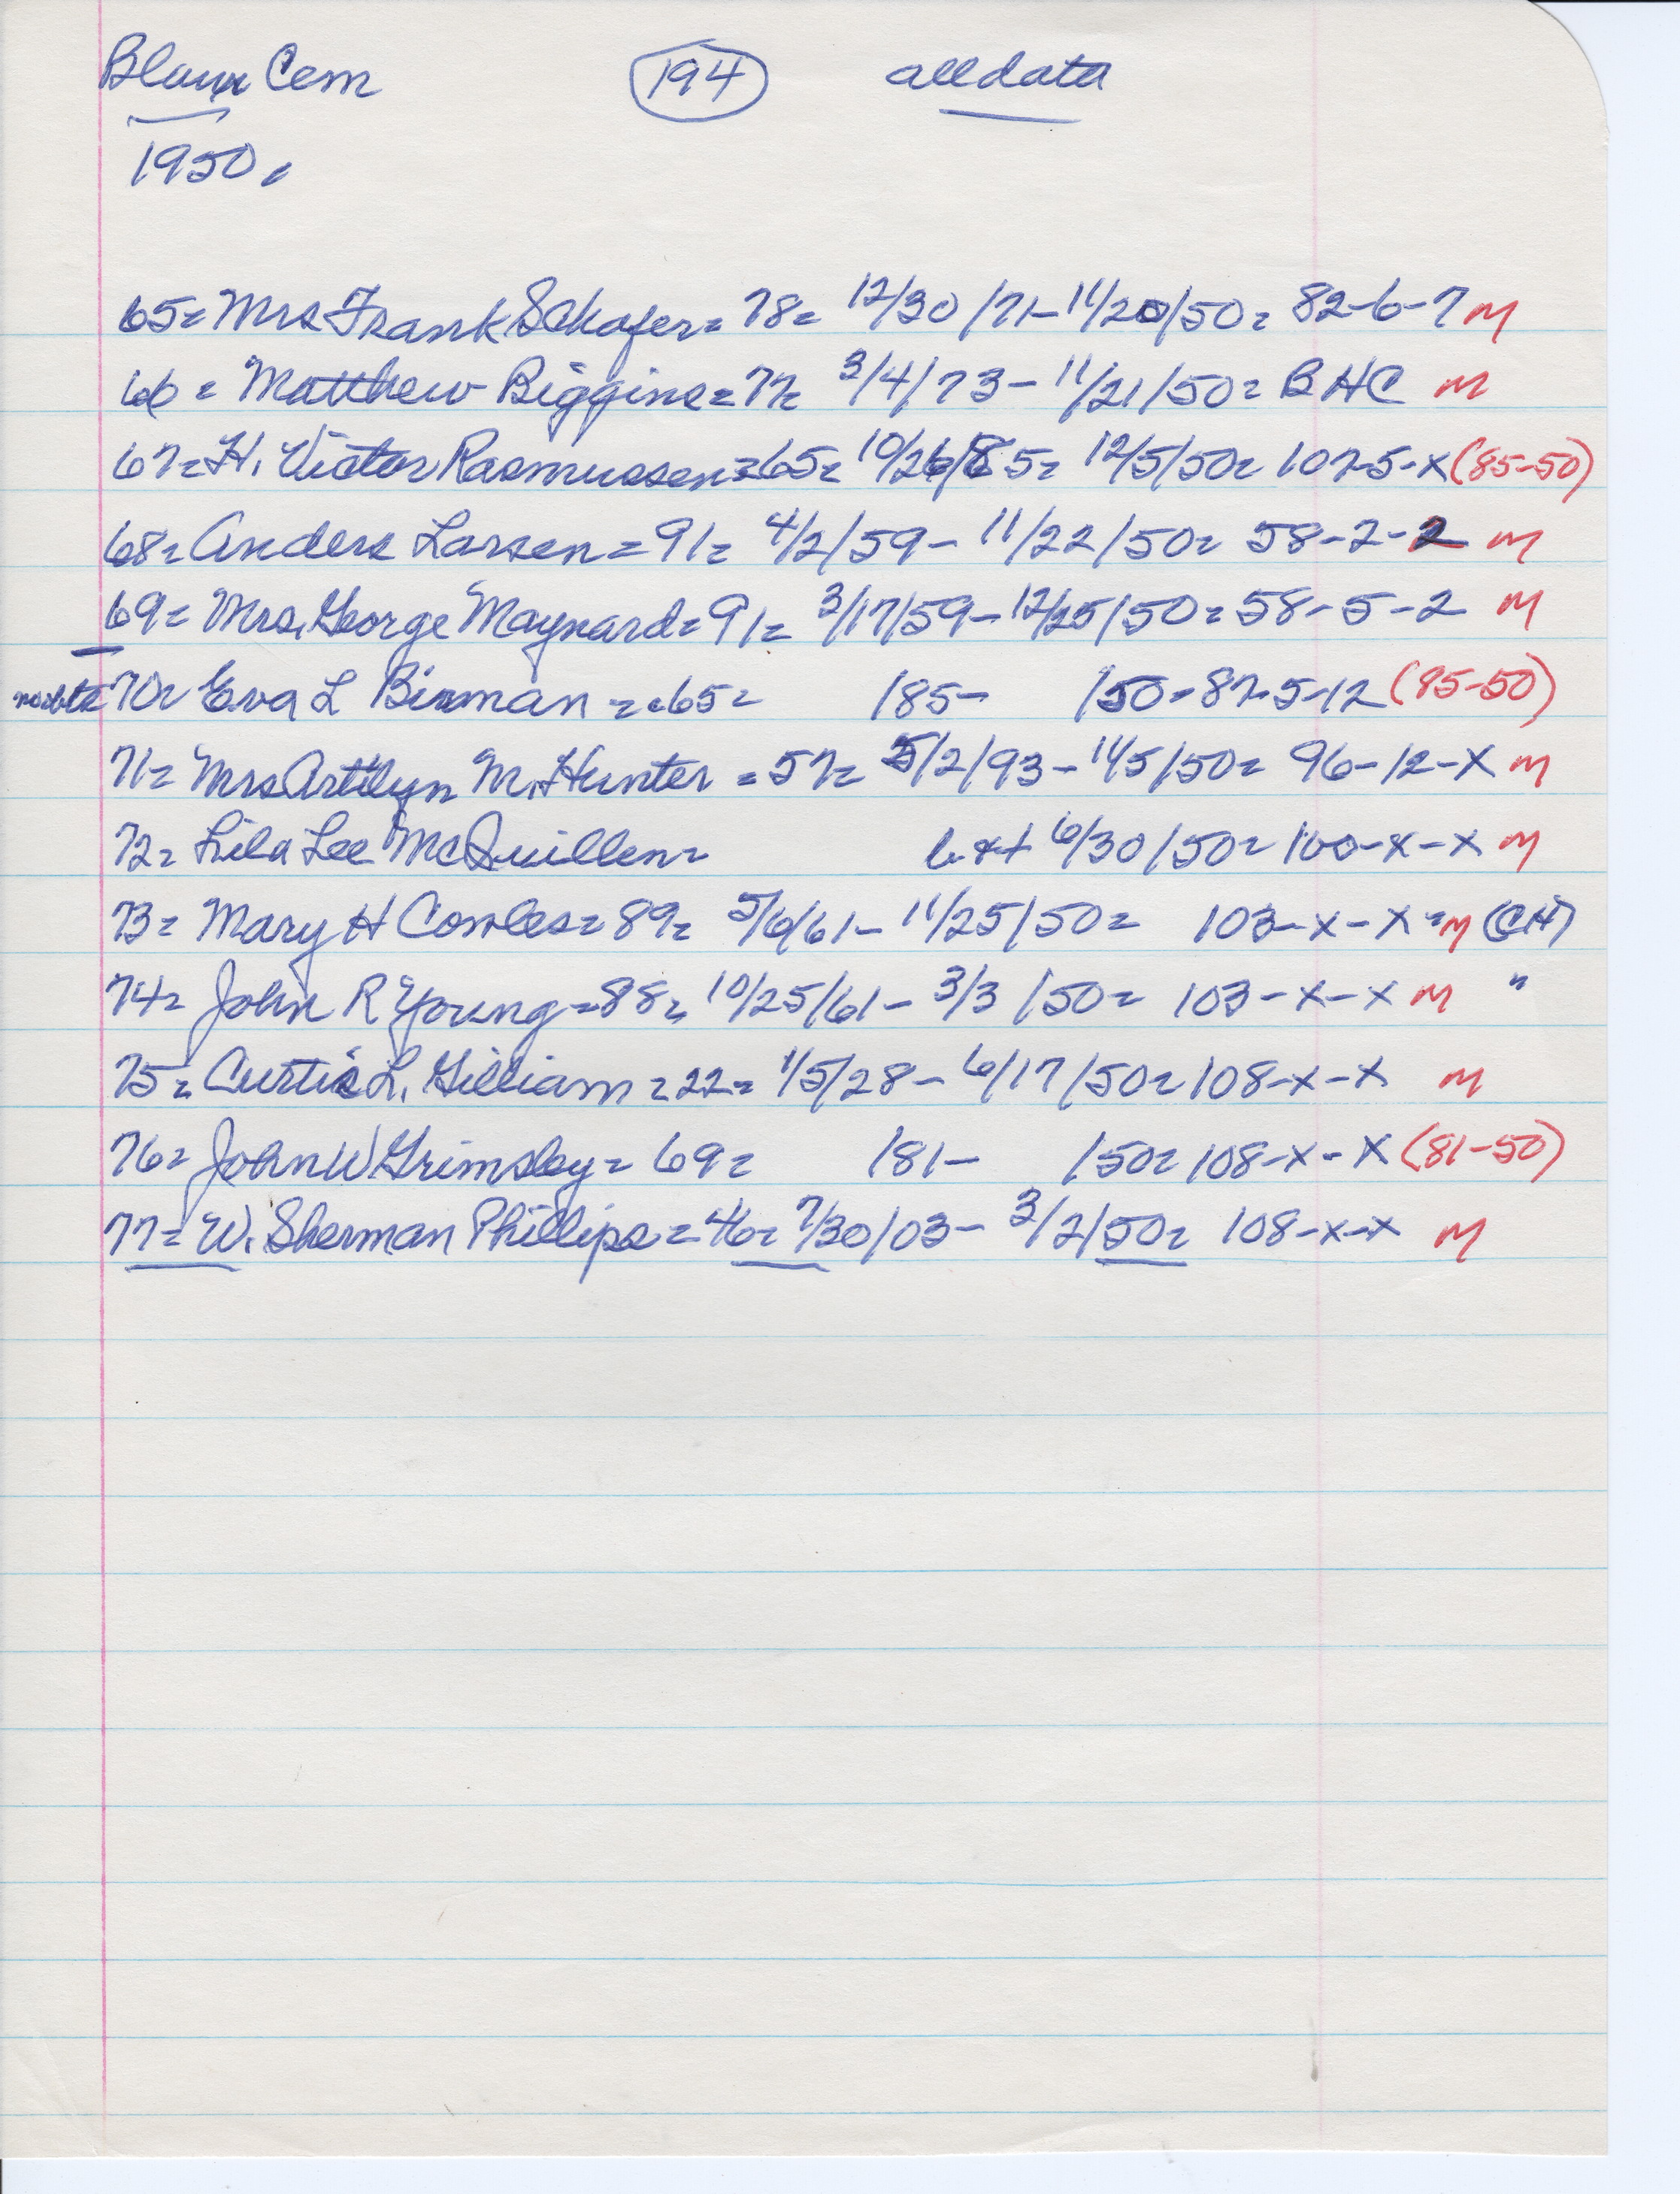 Blair Cem 194 all data
1950.
65= Mrs Frank Schafer= 78= 12/30/71-11/20/50= 82-6-7 M
66= Matthew Biggins=77= 3/4/73- 11/21/50= BHC M
67= H. Victor Rasmussen=65= 10/26/85= 12/5/50= 107-5-x (85-50)
68= Anders Larsen=91= 4/2/59- 11/22/50= 58-2-2 M
69= Mrs. George Maynard=91= 3/17/59-12/25/50=58-5-2 M
70= Eva L Birman ==65= /85- /50=87-5-12 (85-50)
71= Mrs Artilyn M. Hunter =57= 5/2/93-11/5/50= 96-12-X M
72= Lila Lee McQuillen= 6/30/50=100-x-x M
73= Mary H Cowles=89= 5/6/61- 11/25/50= 103-x-x = M (CH)
74= John R Young=88= 10/25/61- 3/3/50= 103-x-x M "
75= Curtis L. Gilliam=22= 1/5/28- 6/17/50=108-x-x M
76= John W Grimsley= 69= /81- /50=108-x-x (81-50)
77= W. Sherman Phillips=46= 7/30/03- 3/2/50= 108-x-x M